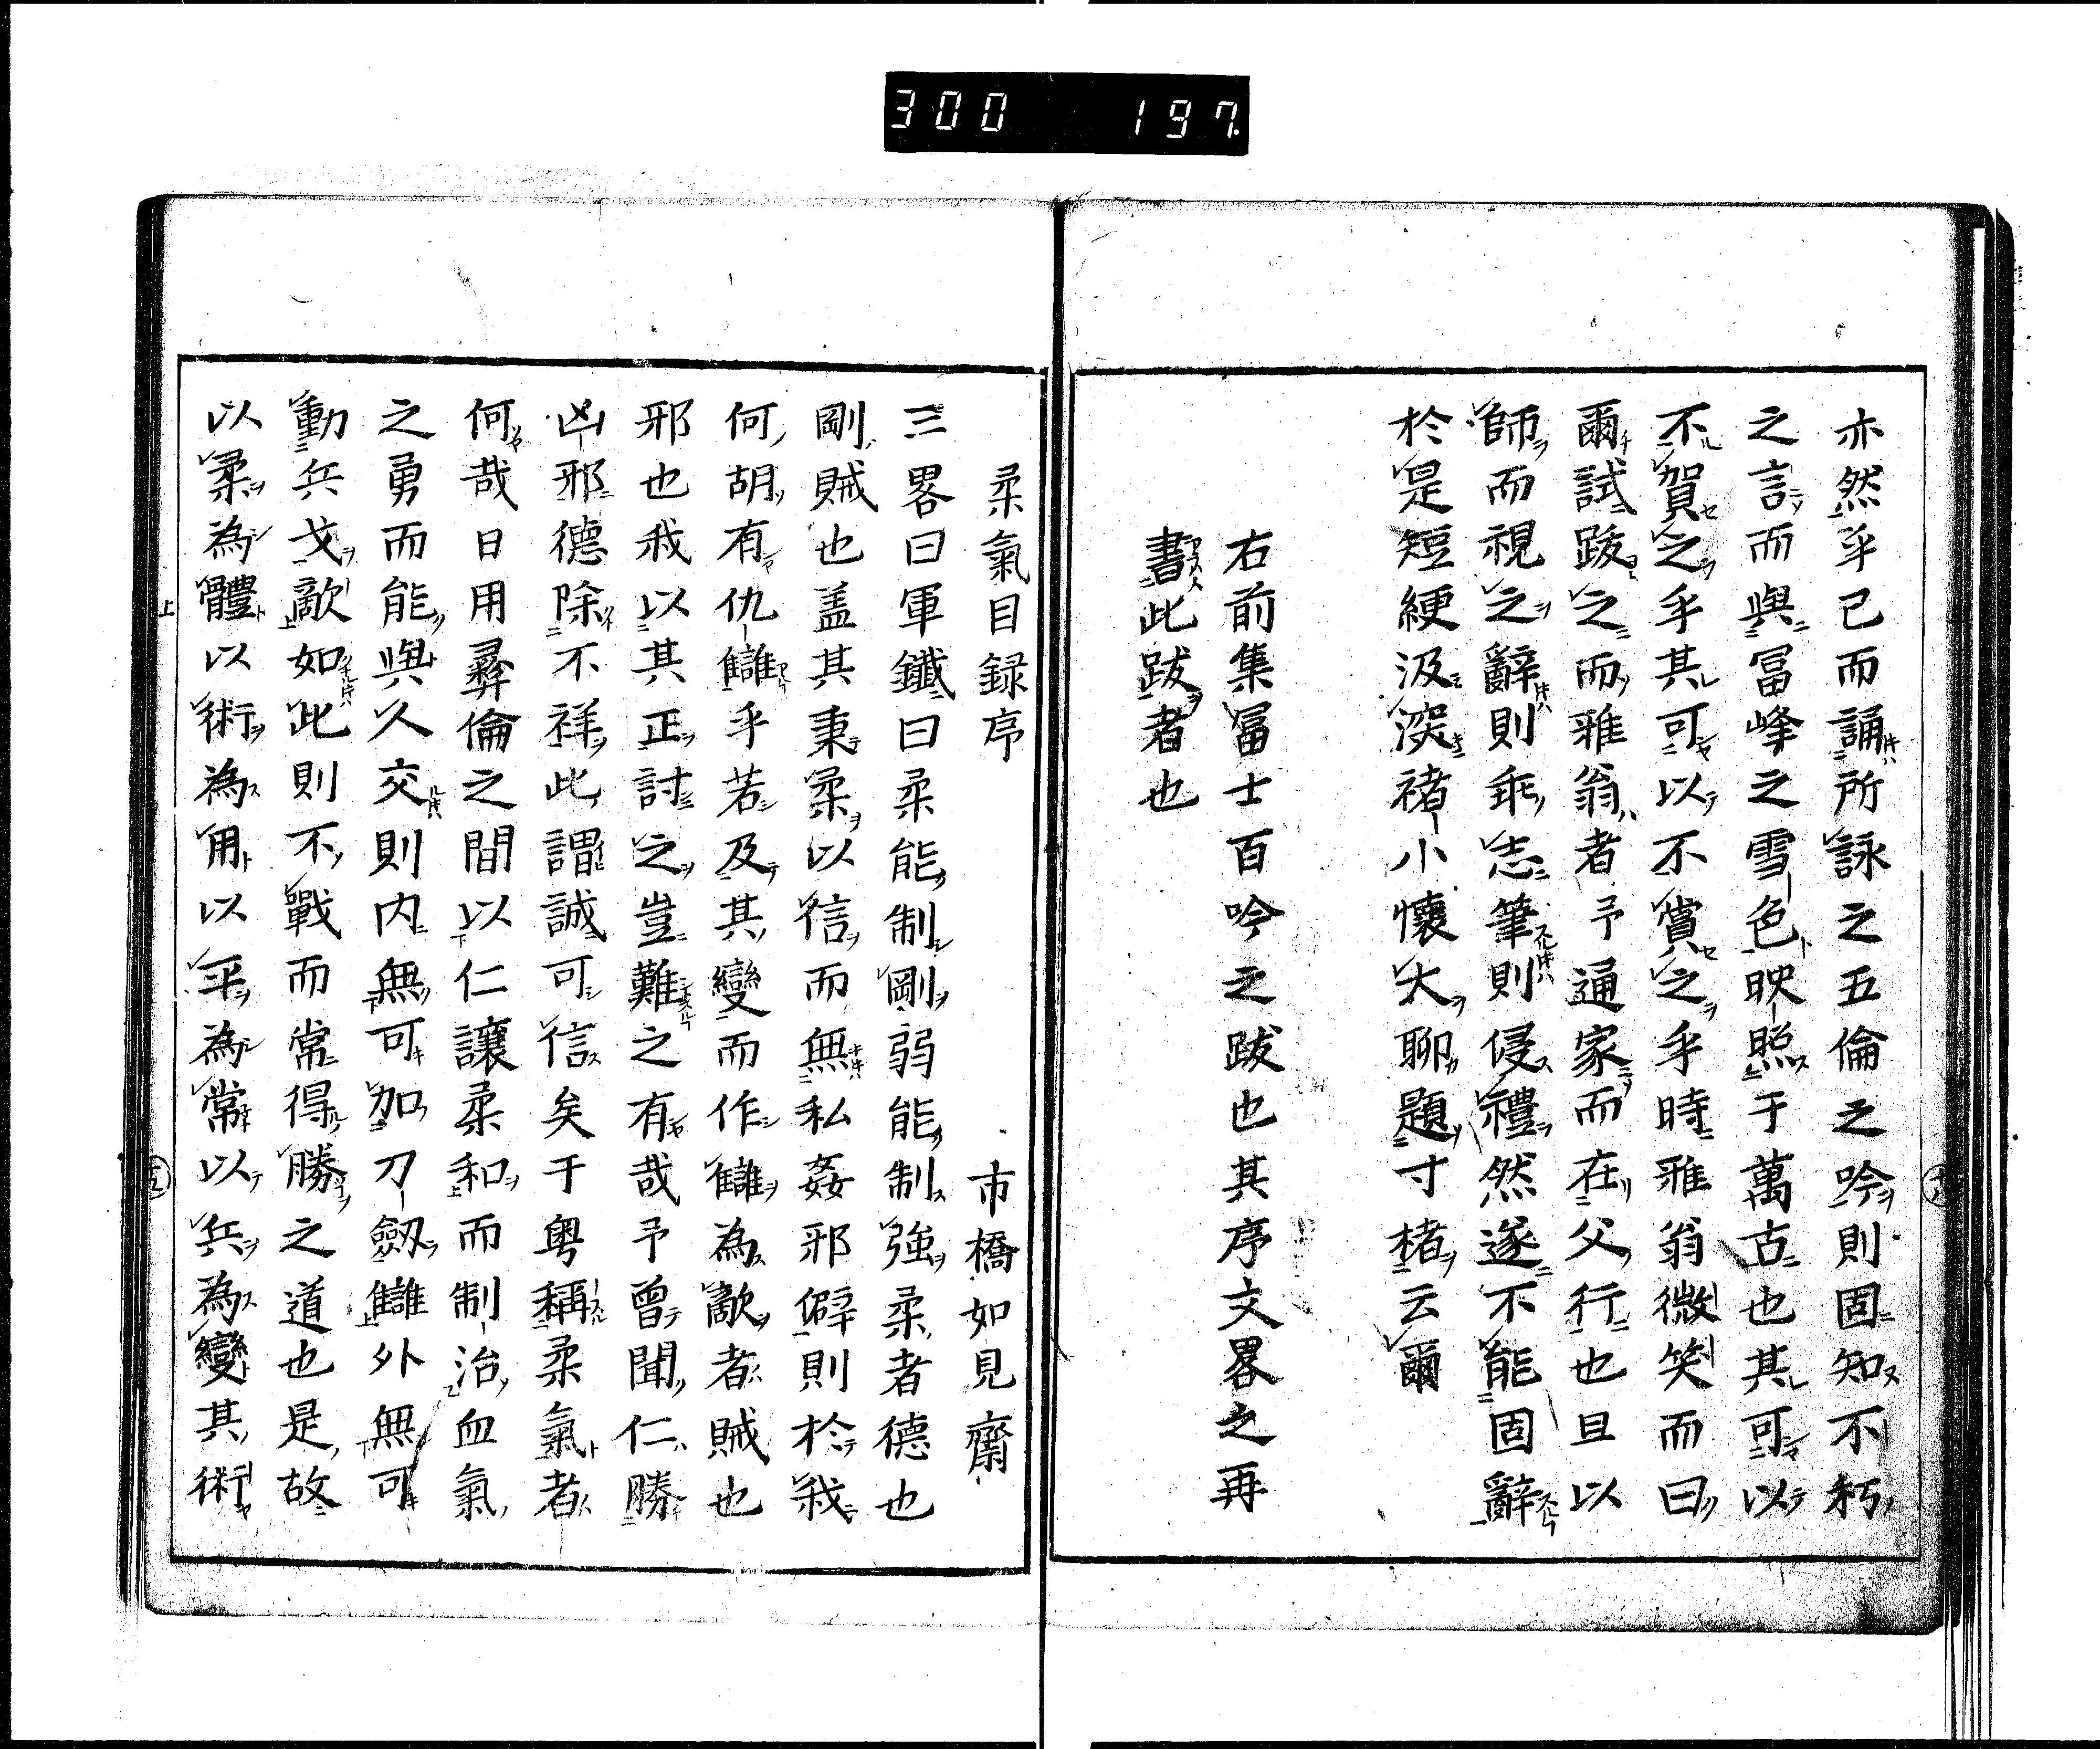 300 197
亦然乎已而誦所詠之五倫之吟則固知不朽
之言而與冨峰之雪色映照于萬古也其可以
不賀之乎其可以不賞之乎時雅翁微笑而曰
爾試跋之而雅翁者予通家而在父行也且以
師而視之辭則乖志筆則侵禮然遂不能固辭
於是短綆汲深褚小懷大聊題寸楮云爾
右前集冨士百吟之跋也其序文畧之再
書此跋者也
柔氣目録序 市橋如見齋
三畧曰軍鐵曰柔能制剛弱能制強柔者德也
剛賊也盖其秉柔以信而無私姦邪僻則於我
何胡有仇讎乎若及其變而作讎為敵者賊也
邪也我以其正討之豈難之有哉予曾聞仁勝
凶邪德除不祥此謂誠可信矣于粤稱柔氣者
何哉日用彝倫之間以仁讓柔和而制治血氣
之勇而能與人交則内無可加刀劔讎外無可
動兵戈敵如此則不戰而常得勝之道也是故
以柔為體以術為用以平為常以兵為變其術